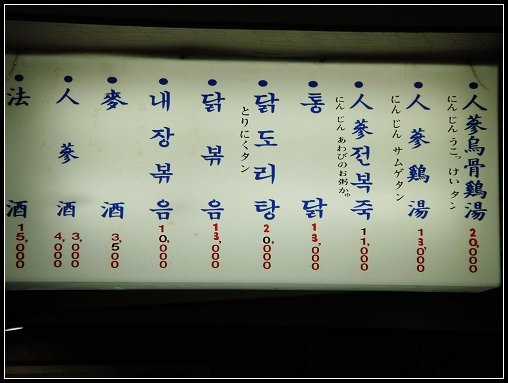 人蔘烏骨鷄湯
にんじん うこっ けいタン
20,000
人参鷄湯
にんじん サムゲタン
13,000
人蔘전복죽
にんじん あわびのお粥か。
11,000
통닭
13,000
닭도리탕
とりにくタン
20,000
닭볶음
13,000
내장볶음
10,000
麥酒
3,5000
人蔘酒
3,000
4,000
法酒
15,000